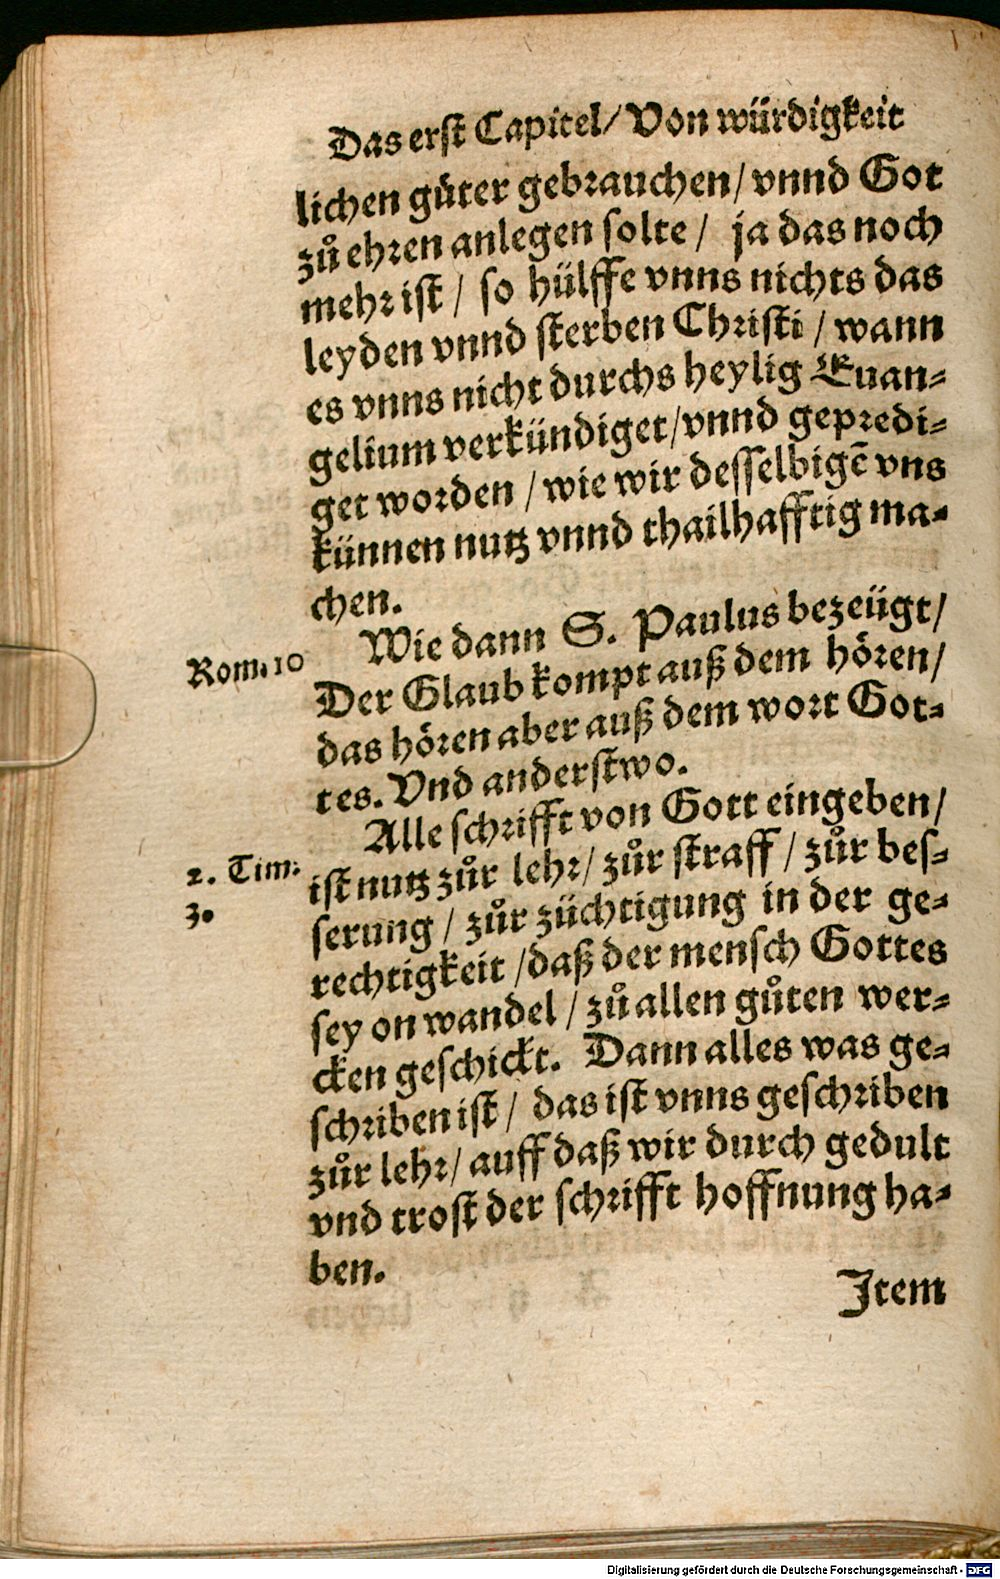 Das erst Capitel/ Von würdigkeit
lichen gůter gebrauchen/ vnnd Got
zů ehren anlegen solte/ ja das noch
mehr ist / so hülffe vnns nichts das
leyden vnnd sterben Christi / wann
es vnns nicht durchs heylig Euan-
gelium verkündiget/ vnnd gepredi-
get worden / wie wir desselbigẽ vns
künnen nutz vnnd thailhafftig ma-
chen.
Wie dann S. Paulus bezeügt/
Rom. 10
Der Glaub kompt auß dem hören/
das hören aber auß dem wort Got-
tes. Vnd anderstwo.
Alle schrifft von Gott eingeben/
2. Tim:
3.
ist nutz zůr lehr/ zůr straff / zůr bes-
serung / zůr züchtigung in der ge-
rechtigkeit /daß der mensch Gottes
sey on wandel / zů allen gůten wer-
cken geschickt. Dann alles was ge-
schriben ist / das ist vnns geschriben
zůr lehr/ auff daß wir durch gedult
vnd trost der schrifft hoffnung ha-
ben.
Item
Digitalisierung gefördert durch die Deutsche Forschungsgemeinschaft - DFG